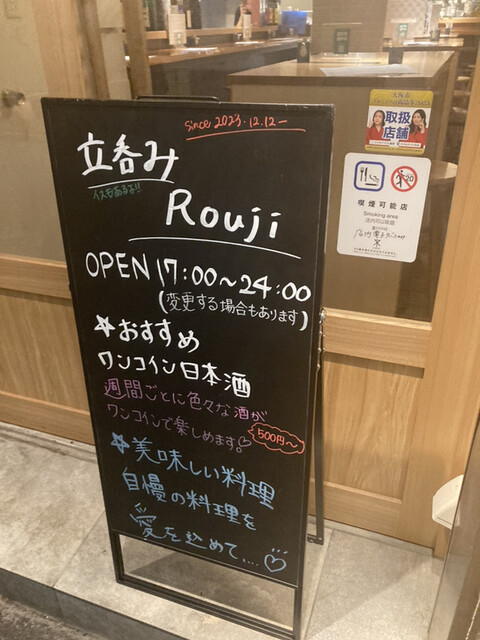 since 2023.12.12~
立呑み
イスもあるよ!!
Rouji
OPEN 17:00~24:00
(変更する場合もあります)
☆おすすめ
ワンコイン日本酒
週間ごとに色々な酒が
ワンコインで楽しめます。♡
500円~
☆美味しい料理
自慢の料理を
愛を込めて....♡
大阪市
取扱
店舗
20
喫煙可能店
Smoking area